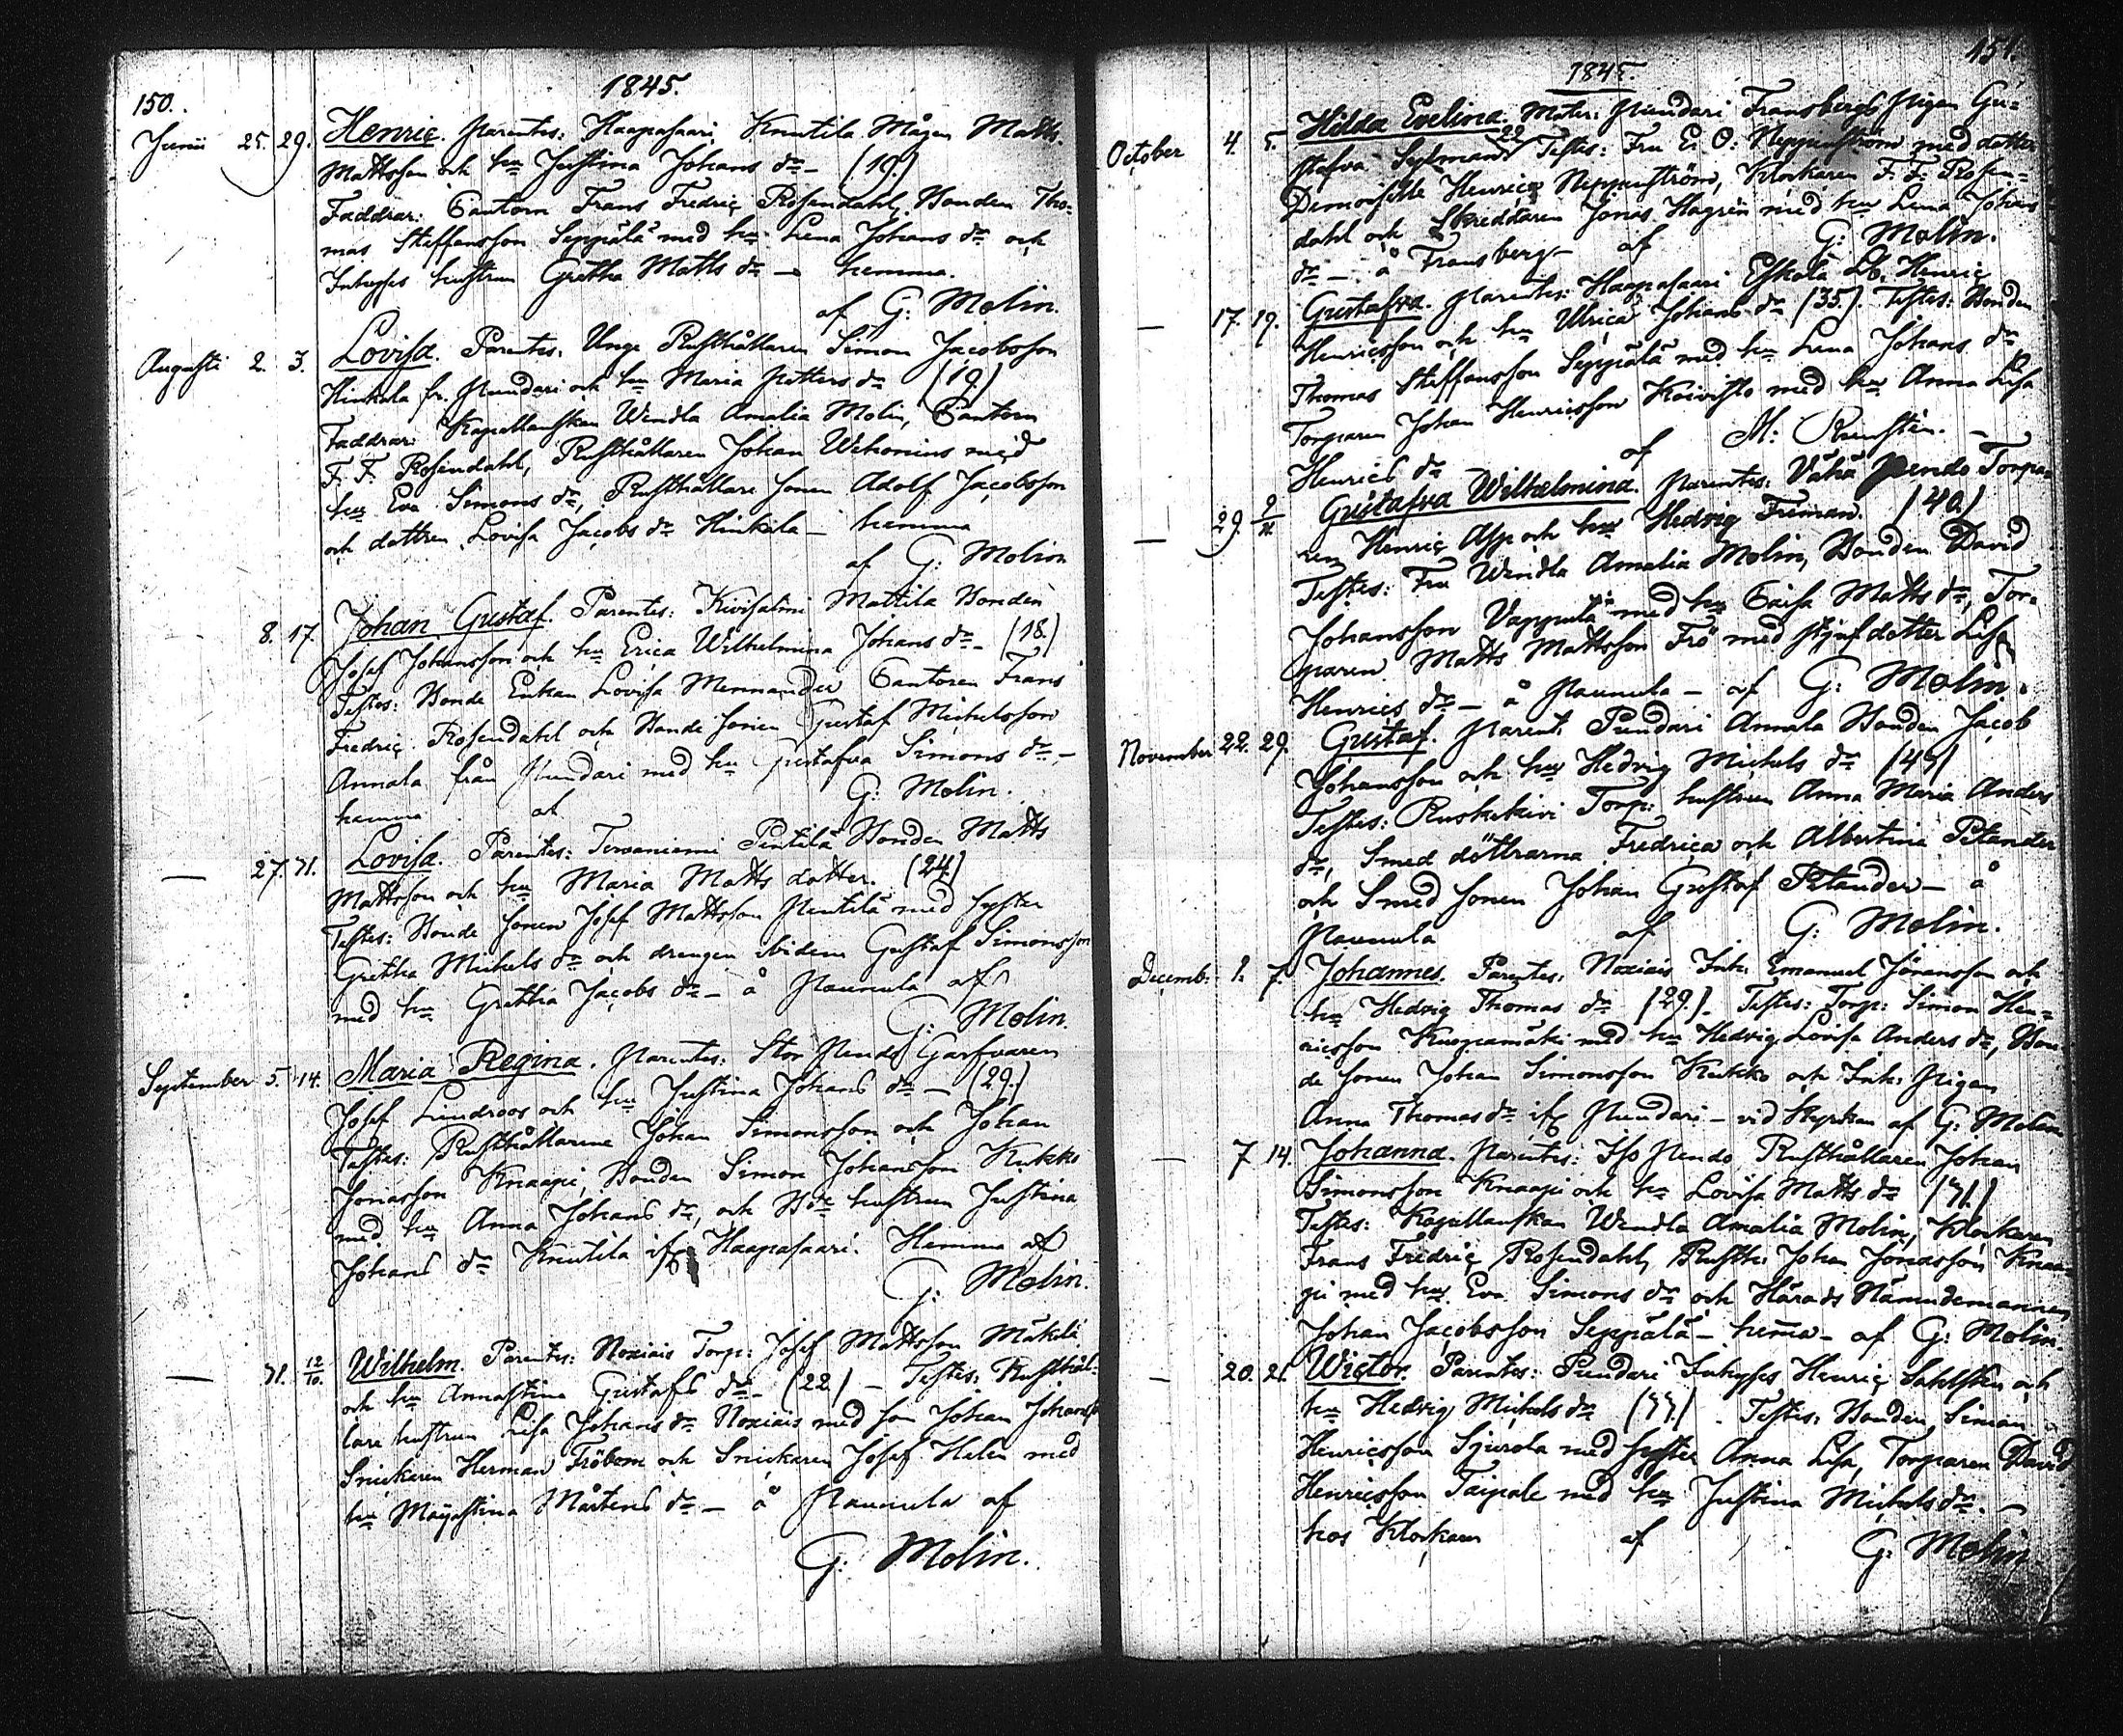 150.
1845.
Junii 25. 29. Henric. Parentes: Haapasaari Knutila Mågen Matts
Mattsson och hu Justina Johans dr – (19.)
Faddrar: Cantorn Frans Fredric Rosendahl, Bonden Tho-
mas Steffansson Seppälä med hu Lena Johans dr och
Inhyses hustrun Gretha Matts dr – hemma.
af G: Molin.
Augusti 2. 3. Lovisa. Parentes: Unge Rusthållaren Simon Jacobsson
Hinkala fr. Pundari och hu Maria Petters dr (19.)
Faddrar: Kapellanskan Wendla Amalia Molin, Cantorn
F. F. Rosendahl, Rusthållaren Johan Wehonius med
hu Eva Simons dr, Rusthållare sonen Adolf Jacobsson
och dottren Lovisa Jacobs dr Hinkala – hemma
af G: Molin
8. 17. Johan Gustaf. Parentes: Kivisalmi Mattila Bonden
Josef Johansson och hu Erica Wilhelmina Johans dr – (18.)
Testes: Bonde Enkan Lovisa Mennander Cantoren Frans
Fredric Rosendahl och Bonde sonen Gustaf Michelsson
Annala från Pundari med hu Gustafva Simons dr –
hemma af G: Molin.
— 27. 31. Lovisa. Parentes: Tervaniemi Pentilä Bonden Matts
Mattsson och hu Maria Matts dotter. (24.)
Testes: Bonde sonen Josef Mattsson Pentilä med syster
Gretha Michels dr och drengen ibidem Gustaf Simonsson
med hu Gretha Jacobs dr – å Paunula af
G: Molin.
September 5. 14. Maria Regina. Parentes: Stor Pendo Garfvaren
Josef Lindroos och hu Justina Johans dr – (29.)
Testes: Rusthållarene Johan Simonsson och Johan
Jonasson Knaapi, Bonden Simon Johansson Kukko
med hu Anna Johans dr, och Bde hustrun Justina
Johans dr Knutila ifr Haapasaari. Hemma af
G: Molin.
— 31. 12/10. Wilhelm. Parentes: Noxiais Torp: Josef Mattsson Mäkelä
och hu Annastina Gustafs dr – (22) – Testes: Rusthål-
lare hustrun Lisa Johans dr Noxiais med son Johan Johanss
Snickaren Herman Fröbom och Snickaren Josef Helen med
hu Majastina Mårtens dr – å Paunula af
G: Molin.
151.
1845.
October 4. 5. Hilda Evelina. Mater: Pundari Fransbergs Pigan Gu-
stafva Sylman 22 Testes: Fru E: O: Neppenström med dotter
Demoiselle Henrica Neppenström, Klockaren F. F. Rosen-
dahl och Skreddaren Jonas Hagrén med hu Lena Johans
dr – å Fransberg – af G: Molin.
— 17. 19. Gustafva. Parentes: Haapasaari Eskola Lb. Henric
Henricsson och hu Ulrica Johans dr (35). Testes: Bonden
Thomas Steffansson Seppälä med hu Lena Johans dr
Torparen Johan Henricsson Koivisto med hu Anna Lisa
Henrics dr af M: Runstén. –
— 29. 2/11 Gustafva Wilhelmina. Parentes: Vähä Pendo Torpa-
ren Henric Asp och hu Hedvig Friman. (40.)
Testes: Fru Wendla Amalia Molin, Bonden David
Johansson Vappula med hu Caisa Matts dr, Tor-
paren Matts Mattsson Frö med stjufdotter Lisa
Henrics dr – å Paunula – af G: Molin.
November 22. 29. Gustaf. Parent. Pundari Annala Bonden Jacob
Johansson och hu Hedvig Michels dr (45)
Testes: Ruskekivi Torp: hustrun Anna Maria Anders
dr, Smed döttrarna Fredrica och Albertina Petander
och Smed sonen Johan Gustaf Petander – å
Paunula af G: Molin.
Decemb: 1. 7. Johannes. Parentes: Noxiais Inh: Emanuel Jöransson och
hu Hedvig Thomas dr (29.). Testes: Torp: Simon Hen-
ricsson Kuopamäki med hu Hedvig Lovisa Anders dr, Bon-
de sonen Johan Simonsson Kukko och Inh: Pigan
Anna Thomas dr ifr Pundari – vid Kyrkan af G: Molin
— 7 14. Johanna. Parentes: Iso Pendo Rusthållaren Johan
Simonsson Knaapi och hu Lovisa Matts dr (31.)
Testes: Kapellanskan Wendla Amalia Molin, Klockaren
Frans Fredric Rosendahl, Rusth: Johan Jonasson Knaa-
pi med hu Eva Simons dr och Härads Nämndemannen
Johan Jacobsson Seppälä – hema – af G: Molin.
— 20. 21. Wictor. Parentes: Pundari Inhyses Henric Sahlstén och
hu Hedvig Michels dr (33.) – Testes: Bonden Simon
Henricsson Sjurola med syster Anna Lisa, Torparen David
Henricsson Taipale med hu Justina Michels dr. –
hos Klockaren af G: Molin